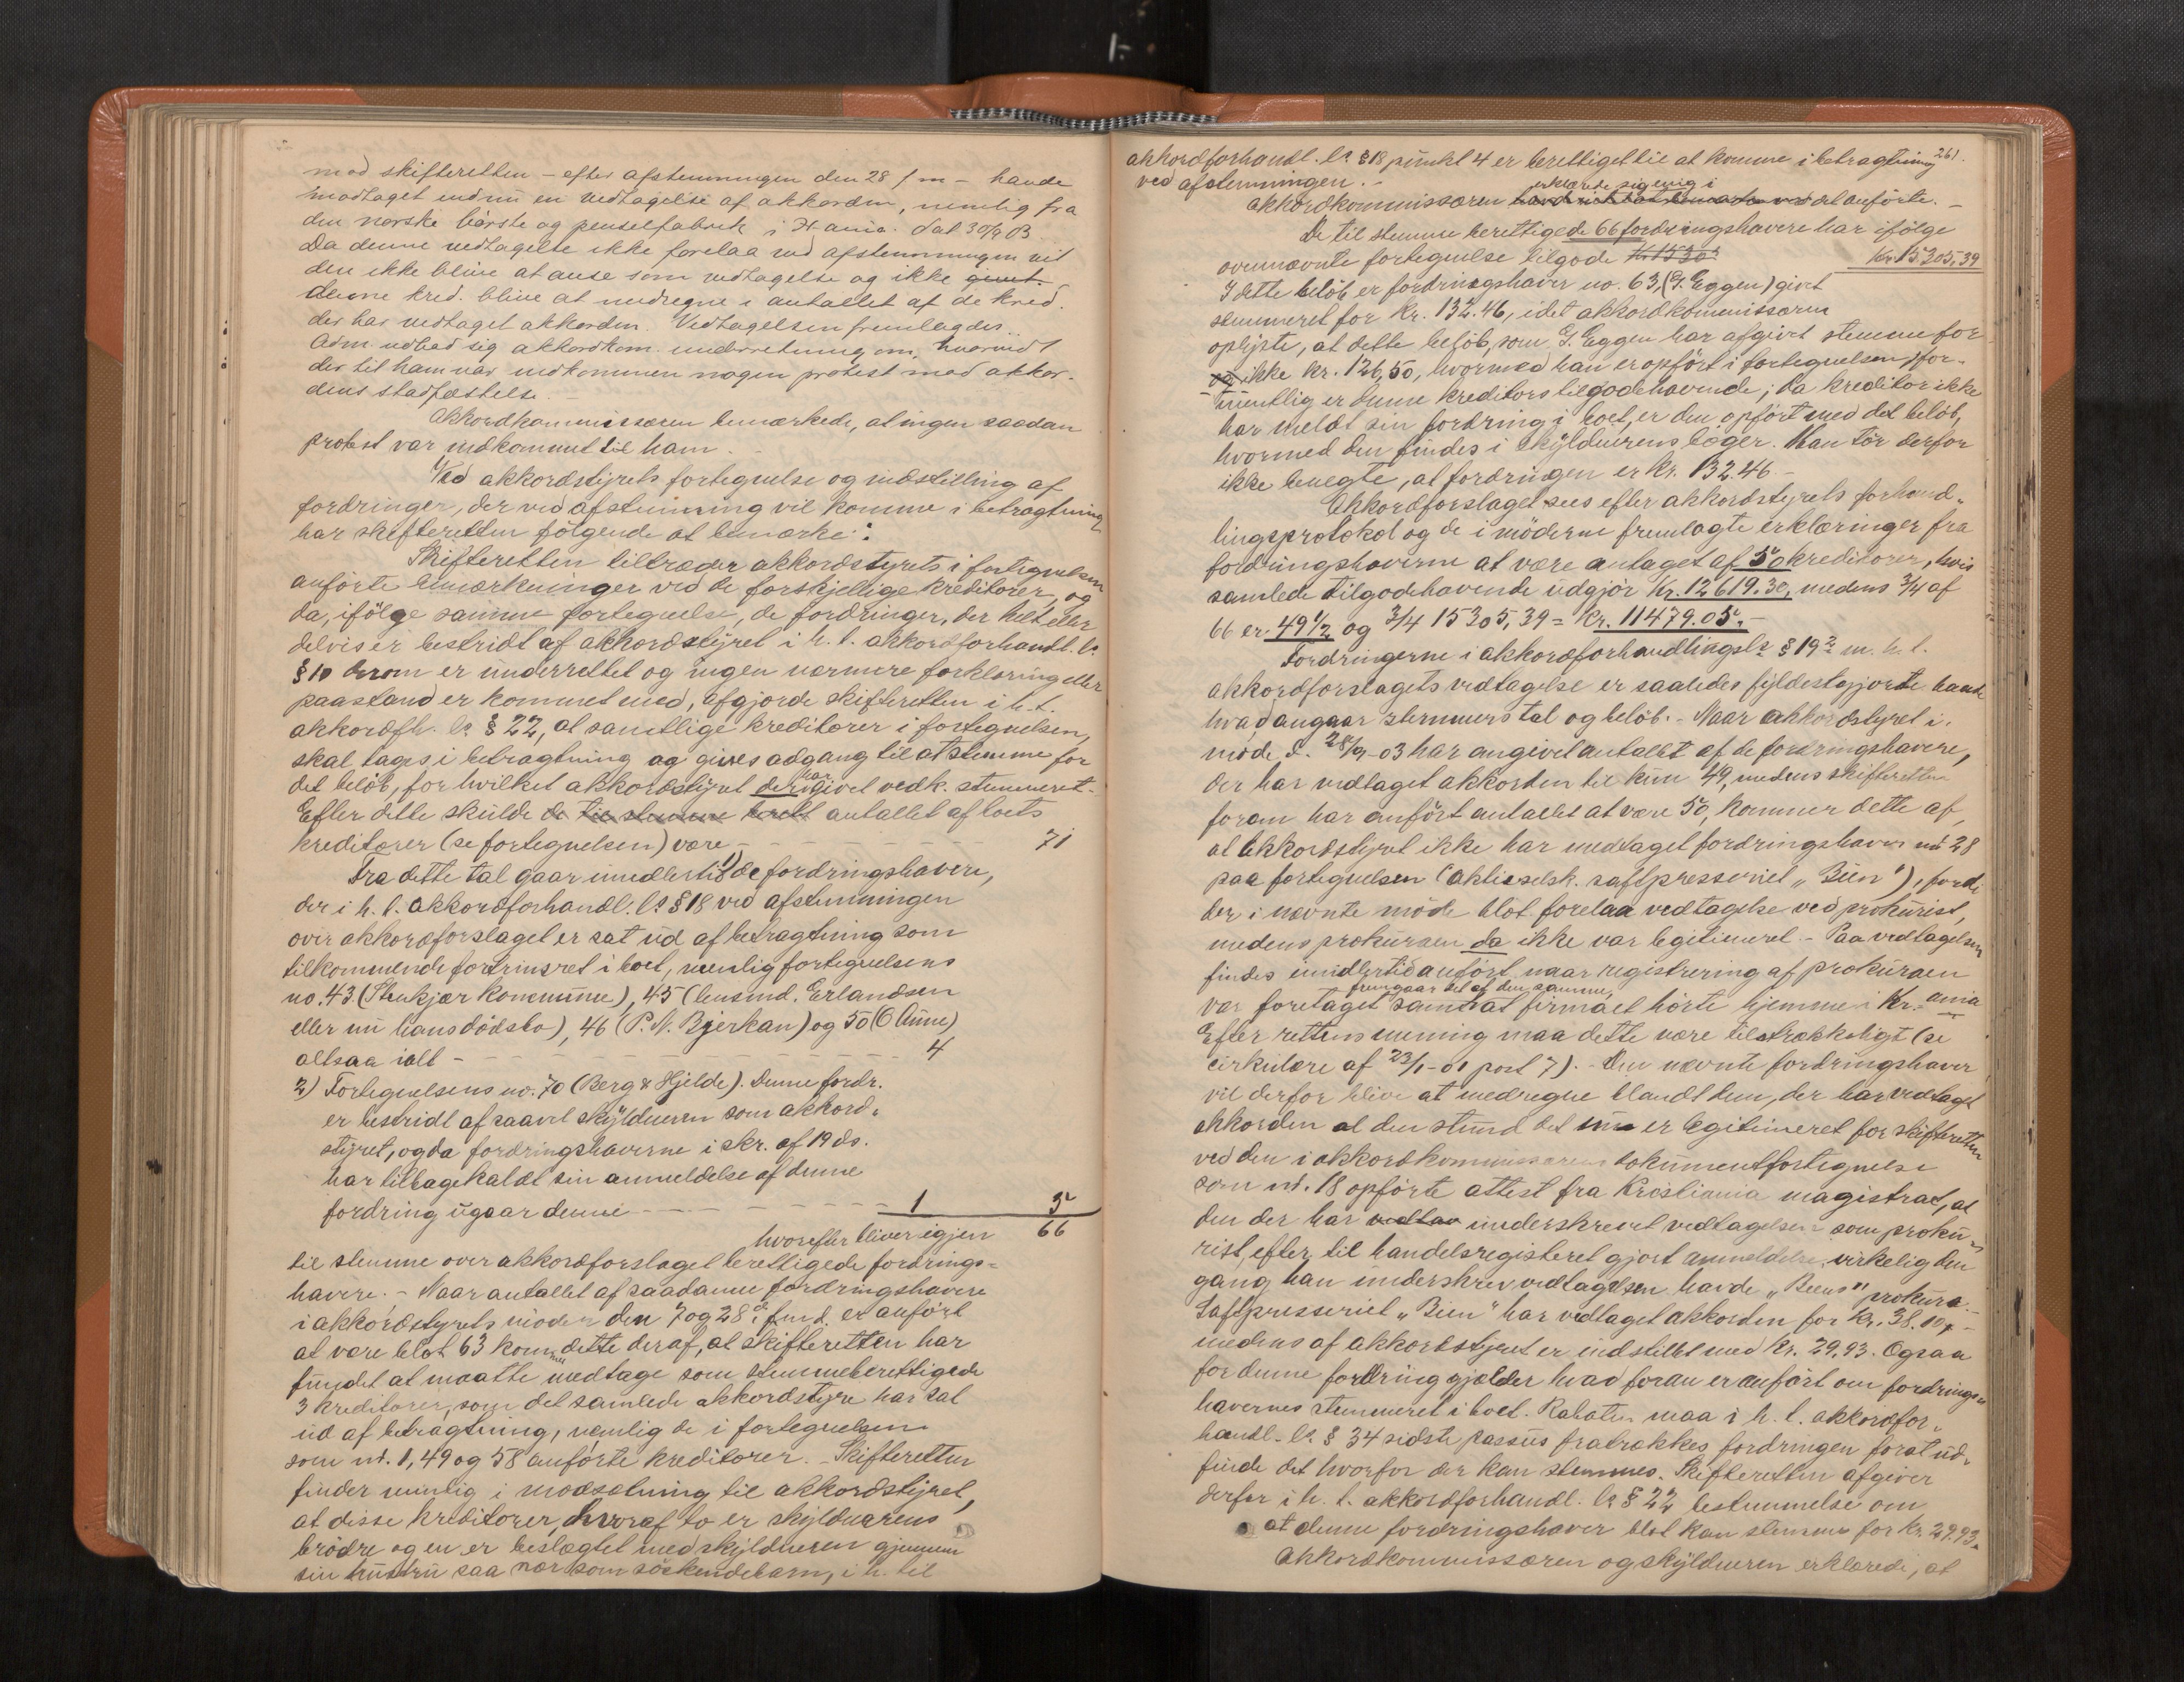 mod skifteretten – efter afstemningen den 28 f m – havde
modtaget endnu en vedtagelse af akkorden, nemlig fra
den norske börste og penselfabrik i X ania. dat 30/9 03
Da denne vedtagelse ikke forelaa ved afstemningen vil
den ikke blive at anse som vedtagelse og ikke
denne kred. blive at medregne i antallet af de kred.
der har vedtaget akkorden. Vedtagelsen fremlagdes.
Adm udbad sig akkordkom. underretning om, hvorvidt
der til ham var indkommen nogen protest mod akkor-
dens stadfæstelse. –
Akkordkommissæren bemærkede, at ingen saadan
protest var indkommet til ham. –
Ved akkordstyrets fortegnelse og indstilling af
fordringer, der ved afstemning vil komme i betragtning
har skifteretten fölgende at bemærke:
Skifteretten tiltræder akkordstyrets i fortegnelsen
anförte bemærkninger ved de forskjellige kreditorer, og
da, ifölge samme fortegnelse, de fordringer, der helt eller
delvis er bestridt af akkordstyret i h. t. akkordforhandl. ls
§ 10 herom er underrettet og ingen nærmere forklaring eller
paastand er kommet med, afgjorde skifteretten i h. t.
akkordfh. ls § 22, at samtlige kreditorer i fortegnelsen,
skal tages i betragtning og gives adgang til at stemme for
det belöb, for hvilket akkordstyret deri har givet vedk. stemmeret. –
Efter dette skulde de til stemme berett antallet af boets
kreditorer (se fortegnelsen) være – – – – – 71
Fra dette tal gaar imidlertid 1) de fordringshavere,
der i h. t. akkordforhandl. ls § 18 ved afstemningen
over akkordforslaget er sat ud af betragtning som
tilkommende fortrinsret i boet, nemlig fortegnelsens
no. 43 (Stenkjær kommune), 45 (lensmd. Erlandsen
eller nu hans dödsbo), 46 (P. N. Bjerkan) og 50 (O Aune)
altsaa ialt – – – – – 4
2) Fortegnelsens no. 70 (Berg & Hjelde). Denne fordr.
er bestridt af saavel skyldneren som akkord-
styret, og da fordringshaverne i skr. af 19 ds.
har tilbagekaldt sin anmeldelse af denne
fordring udgaar denne – – – – 1 5
hvorefter bliver igjen 66
til stemme over akkordforslaget berettigede fordrings-
havere. – Naar antallet af saadanne fordringshavere
i akkordstyrets möder den 7 og 28 i f. md. er anfört
at være blot 63 kommer dette deraf, at skifteretten har
fundet at maatte medtage som stemmeberettigede
3 kreditorer, som det samlede akkordstyre har sat
ud af betragtning, nemlig de i fortegnelsen
som nr. 1, 49 og 58 anförte kreditorer. – Skifteretten
finder nemlig i modsætning til akkordstyret,
at disse kreditorer, hvoraf to er skyldnerens
brödre og en er beslægtet med skyldneren gjennem
sin hustru saa nær som söskendebarn, i h. til
261.
akkordforhandl. ls § 18 punkt 4 er berettiget til at komme i betragtning
ved afstemningen. –
akkordkommissæren erklærte sig enig i det anförte. –
De til stemme berettigede 66 fordringshavere har ifölge
ovennævnte fortegnelse tilgode Kr. 1530 Kr. 15305,39
I dette belöb er fordringshaver no. 63, (G. Eggen) givet
stemmeret for Kr. 132.46, idet akkordkommissæren
oplyste, at dette belöb, som G. Eggen har afgivet stemme for
og ikke kr. 126,50, hvormed han er opfört i fortegnelsen, for-
mentlig er denne kreditors tilgodehavende; da kreditor ikke
har meldt sin fordring i boet, er den opfört med det belöb,
hvormed den findes i skyldnerens böger. Man tör derfor
ikke benegte, at fordringen er kr. 132.46. –
Akkordforslaget sees efter akkordstyrets forhand-
lingsprotokol og de i möderne fremlagte erklæringer fra
fordringshaverne at være antaget af 50 kreditorer, hvis
samlede tilgodehavende udgjör Kr. 12619.30, medens 3/4 af
66 er 49 1/2 og 3/4 15305,39 = Kr. 11479.05. –
Fordringerne i akkordforhandlingsls § 19 2 m. h. t.
akkordforslagets vedtagelse er saaledes fyldestgjorte baade
hvad angaar stemmers tal og belöb. – Naar akkordstyret i
möde d. 28/9 – 03 har angivet antallet af de fordringshavere,
der har vedtaget akkorden til kun 49, medens skifteretten
foran har anfört antallet at være 50, kommer dette af,
at akkordstyret ikke har medtaget fordringshaver no 28
paa fortegnelsen (aktieselsk. saftpresseriet „Bien"), fordi
der i nævnte möde blot forelaa vedtagelse ved prokurist,
medens prokuraen da ikke var legitimeret. – Paa vedtagelsen
findes imidlertid anfört naar registrering af prokuraen
var foretaget samt fremgaar det af den samme, at firmaet hörte hjemme i Kr.ania
Efter rettens mening maa dette være tilstrækkeligt (se
cirkulære af 23/1 – 01 post 7). – Den nævnte fordringshaver
vil derfor blive at medregne blandt dem, der har vedtaget
akkorden al den stund det er legitimeret for skifteretten
ved den i akkordkommissærens dokumentfortegnelse
som nr. 18 opförte attest fra Kristiania magistrat, at
den der har vedtav underskrevet vedtagelsen som proku-
rist, efter til handelsregisteret gjort anmeldelse, virkelig den
gang han underskrev vedtagelsen havde „Biens" prokura. –
Saftpresseriet „Bien" har vedtaget akkorden for kr. 38.10, –
medens af akkordstyret er indstillet med kr. 29,93. Ogsaa
for denne fordring gjælder hvad foran er anfört om fordrings-
havernes stemmeret i boet. Rabaten maa i h. t. akkordfor-
handl. ls § 34 sidste passus fratrækkes fordringen for at ud-
finde det hvorfor der kan stemmes. Skifteretten afgiver
derfor i h. t. akkordforhandl. ls § 22 bestemmelse om
at denne fordringshaver blot kan stemme for kr. 29.93.
Akkordkommissæren og skyldneren erklærede, at